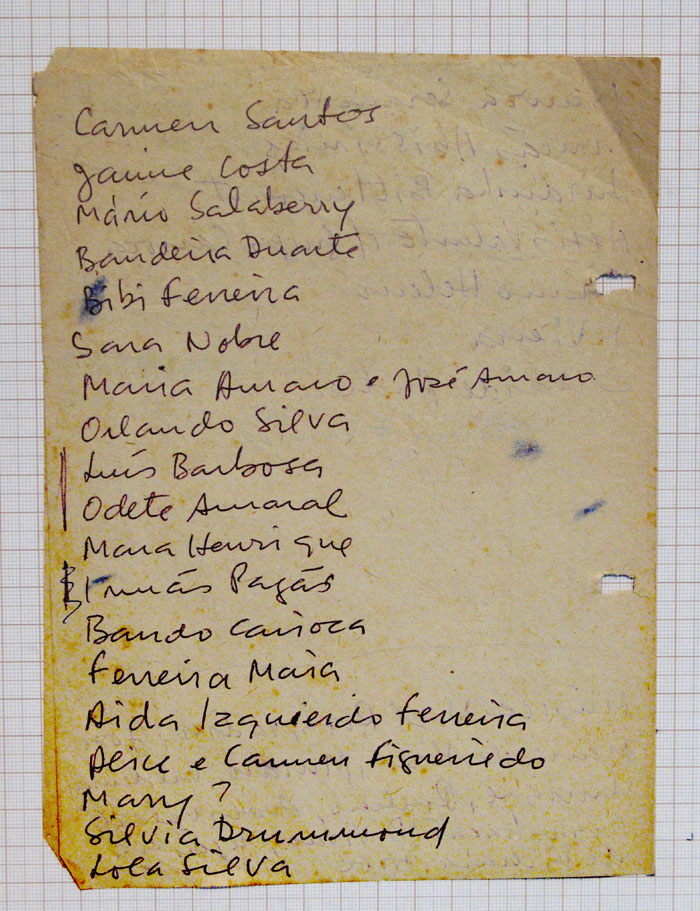 Carmen Santos
Jaime Costa
Mário Salaberry
Bandeira Duarte
Bibi Ferreira
Sara Nobre
Maria Amaro e José Amaro
Orlando Silva
Luís Barbosa
Odete Amaral
Mara Henrique
Irmãs Pagãs
Bando Carioca
Ferreira Maia
Aida Izquierdo Ferreira
Alice e Carmen Figueiredo
Mary ?
Silvia Drummond
Lola Silva